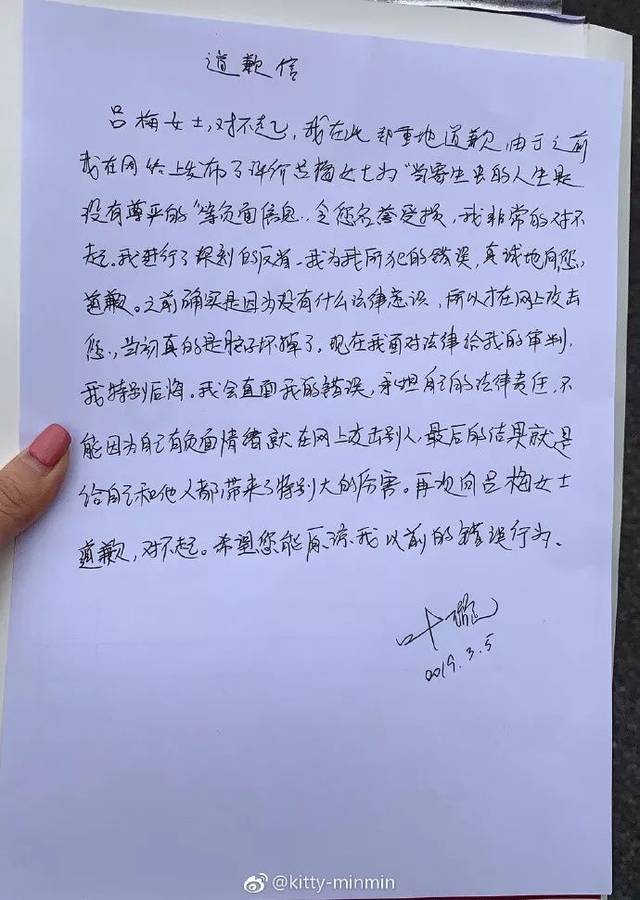 道歉信
吕梅女士,对不起,我在此郑重地道歉,由于之前
我在网络上发布了评价吕梅女士为“当寄生虫的人生是
没有尊严的”等负面信息,令您名誉受损,我非常的对不
起。我进行了深刻的反省,我为我所犯的错误,真诚地向您
道歉。之前确实是因为没有什么法律意识,所以才在网上攻击
您,当初真的是脑子坏掉了。现在我面对法律给我的审判,
我特别后悔。我会直面我的错误,承担自己的法律责任,不
能因为自己有负面情绪就在网上攻击别人,最后的结果就是
给自己和他人都带来了特别大的厉害。再次向吕梅女士
道歉,对不起。希望您能原谅我以前的错误行为。
叶璇
2019.3.5
@kitty-minmin